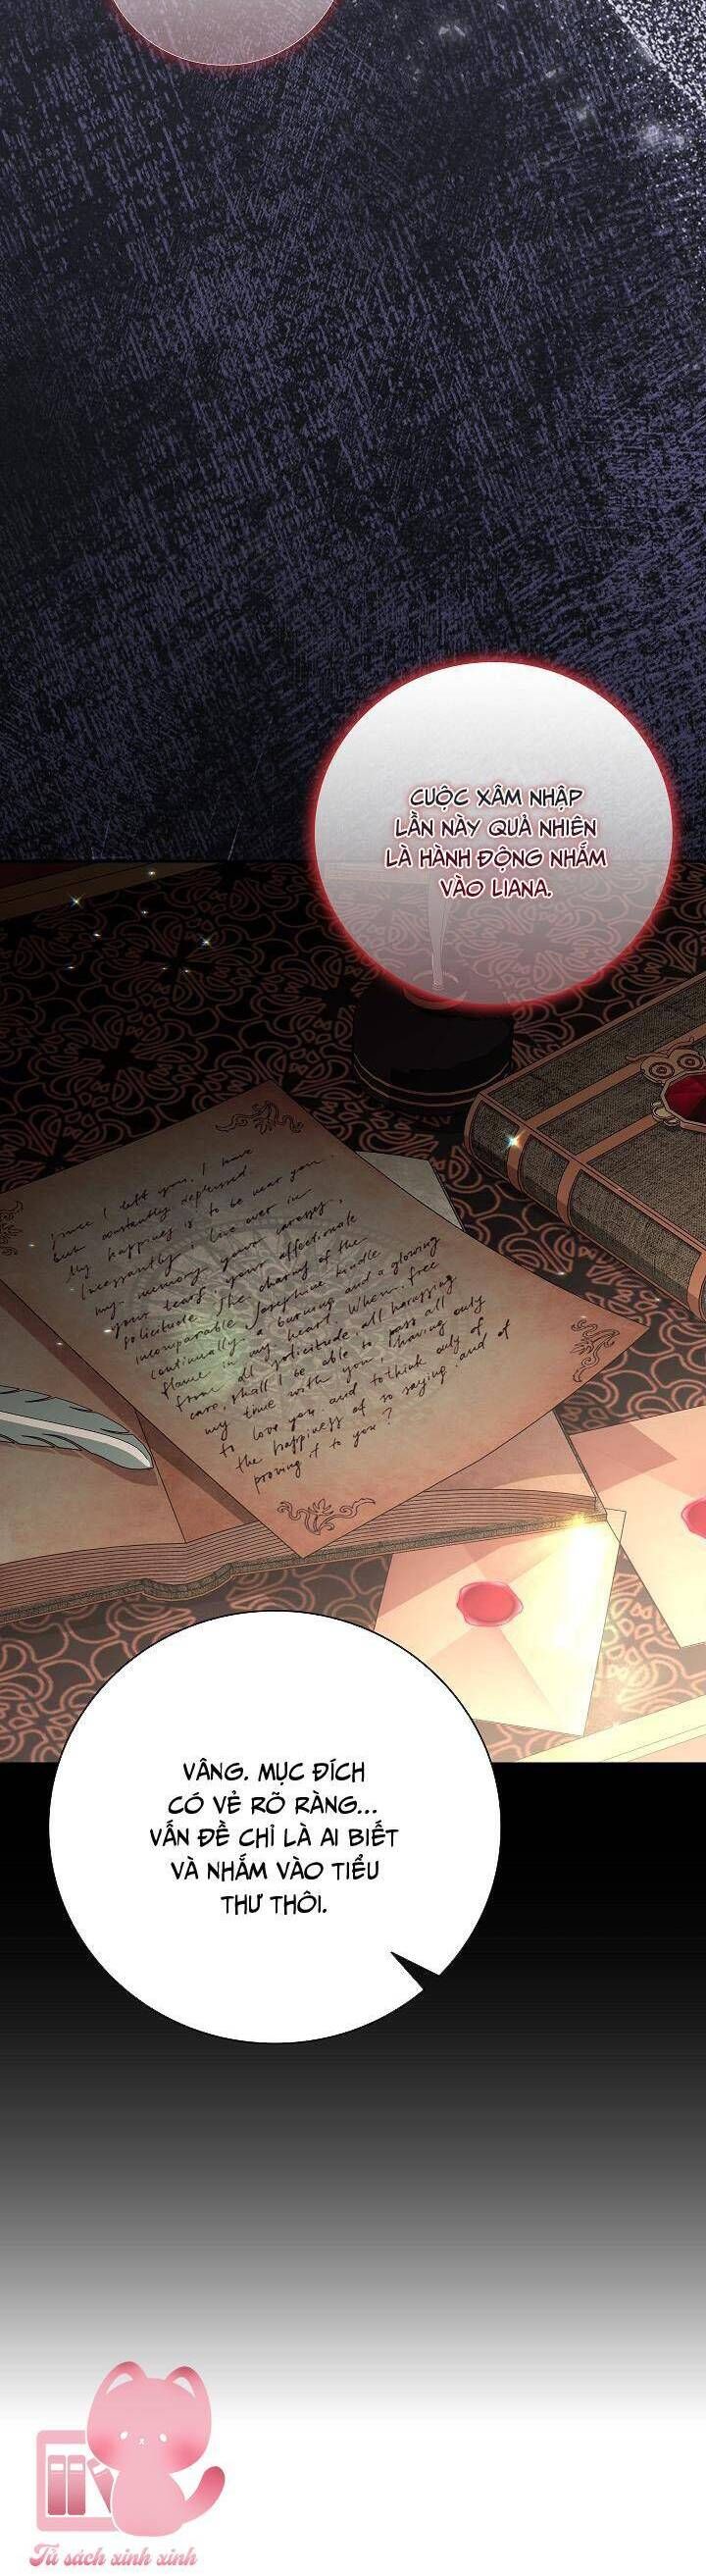 CUỘC XÂM NHẬP
LẦN NÀY QUẢ NHIÊN
LÀ HÀNH ĐỘNG NHẮM
VÀO LIANA.
Since I left you, I have
but constantly depressed
My happiness is to be near you.
Incessantly, I live over in
my memory your caresses,
your tears, your affectionate
solicitude. The charms of the
incomparable Josephine kindle
continually a burning and a glowing
flame in my heart. When, free
from all solicitude, all harassing
care, shall I be able to pass all
my time with you, having only
to love you, and to think only of
the happiness of so saying, and of
proving it to you?
VÂNG. MỤC ĐÍCH
CÓ VẺ RÕ RÀNG...
VẤN ĐỀ CHỈ LÀ AI BIẾT
VÀ NHẮM VÀO TIỂU
THƯ THÔI.
Tủ sách xinh xinh